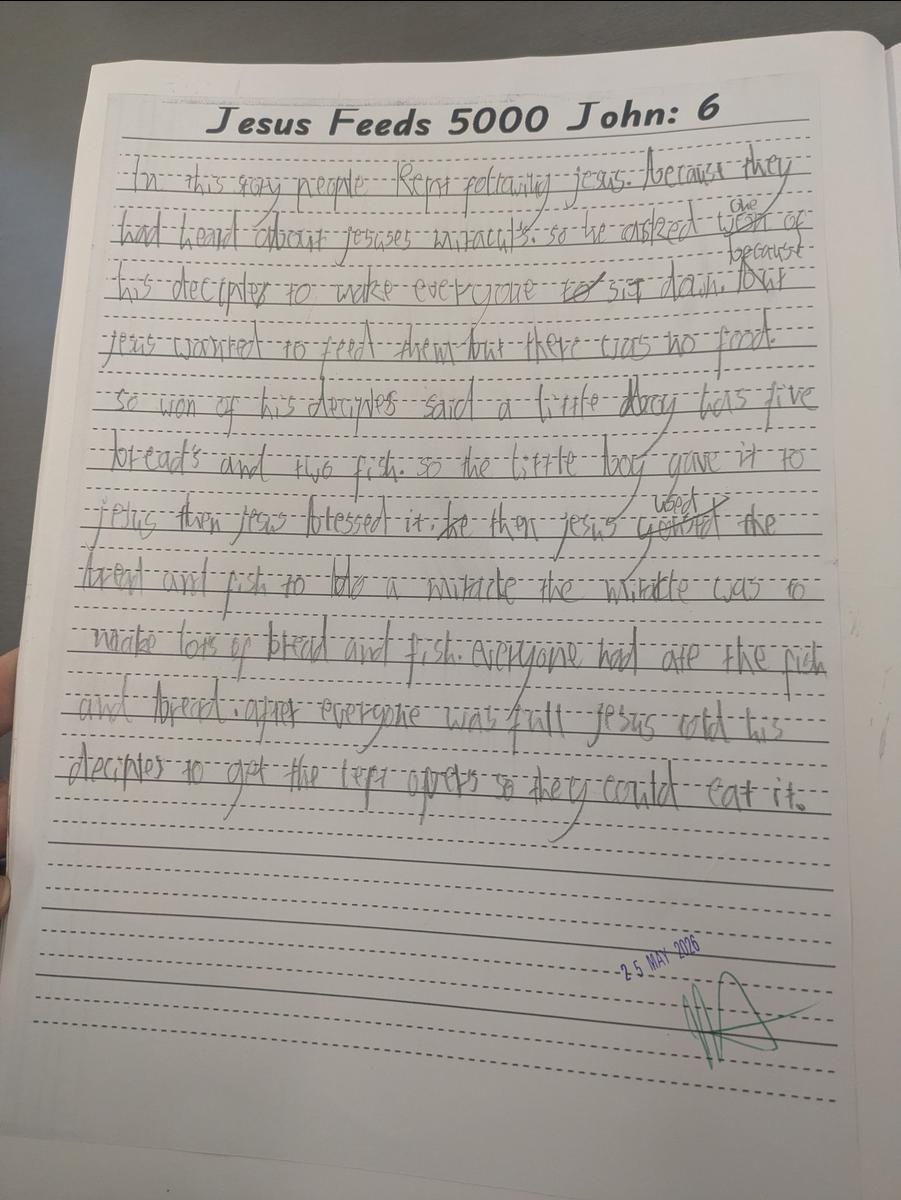 Jesus Feeds 5000 John: 6
In this story people kept following jesus. because they
had heard about jesuses miracul's. so he asked won of
one
his deciples to make everyone to sit down. but
because
jesus wanted to feed them but there was no food.
so won of his deciples said a little boy has five
bread's and two fish. so the little boy gave it to
jesus then jesus blessed it. he then jesus used the
bread and fish to do a miracle the miracle was to
make lots of bread and fish. everyone had ate the fish
and bread. after everyone was full jesus told his
deciples to get the left overs so they could eat it.
25 MAY 2026